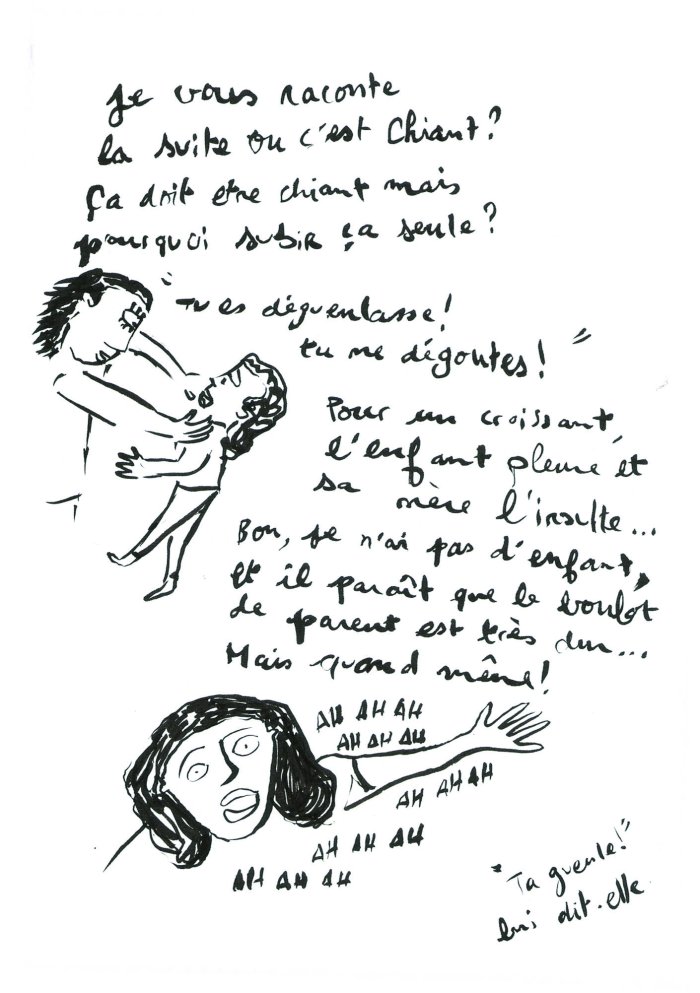 Je vous raconte
la suite ou c'est chiant?
Ça doit etre chiant mais
pourquoi subir ça seule?
"Tu es dégueulasse!
tu me dégoutes!"
Pour un croissant,
l'enfant pleure et
sa mère l'insulte...
Bon, je n'ai pas d'enfant,
et il paraît que le boulot
de parent est très dur...
Mais quand même!
AH AH AH
AH AH AH
AH AH AH
AH AH AH
AH AH AH
"Ta gueule!"
lui dit-elle.